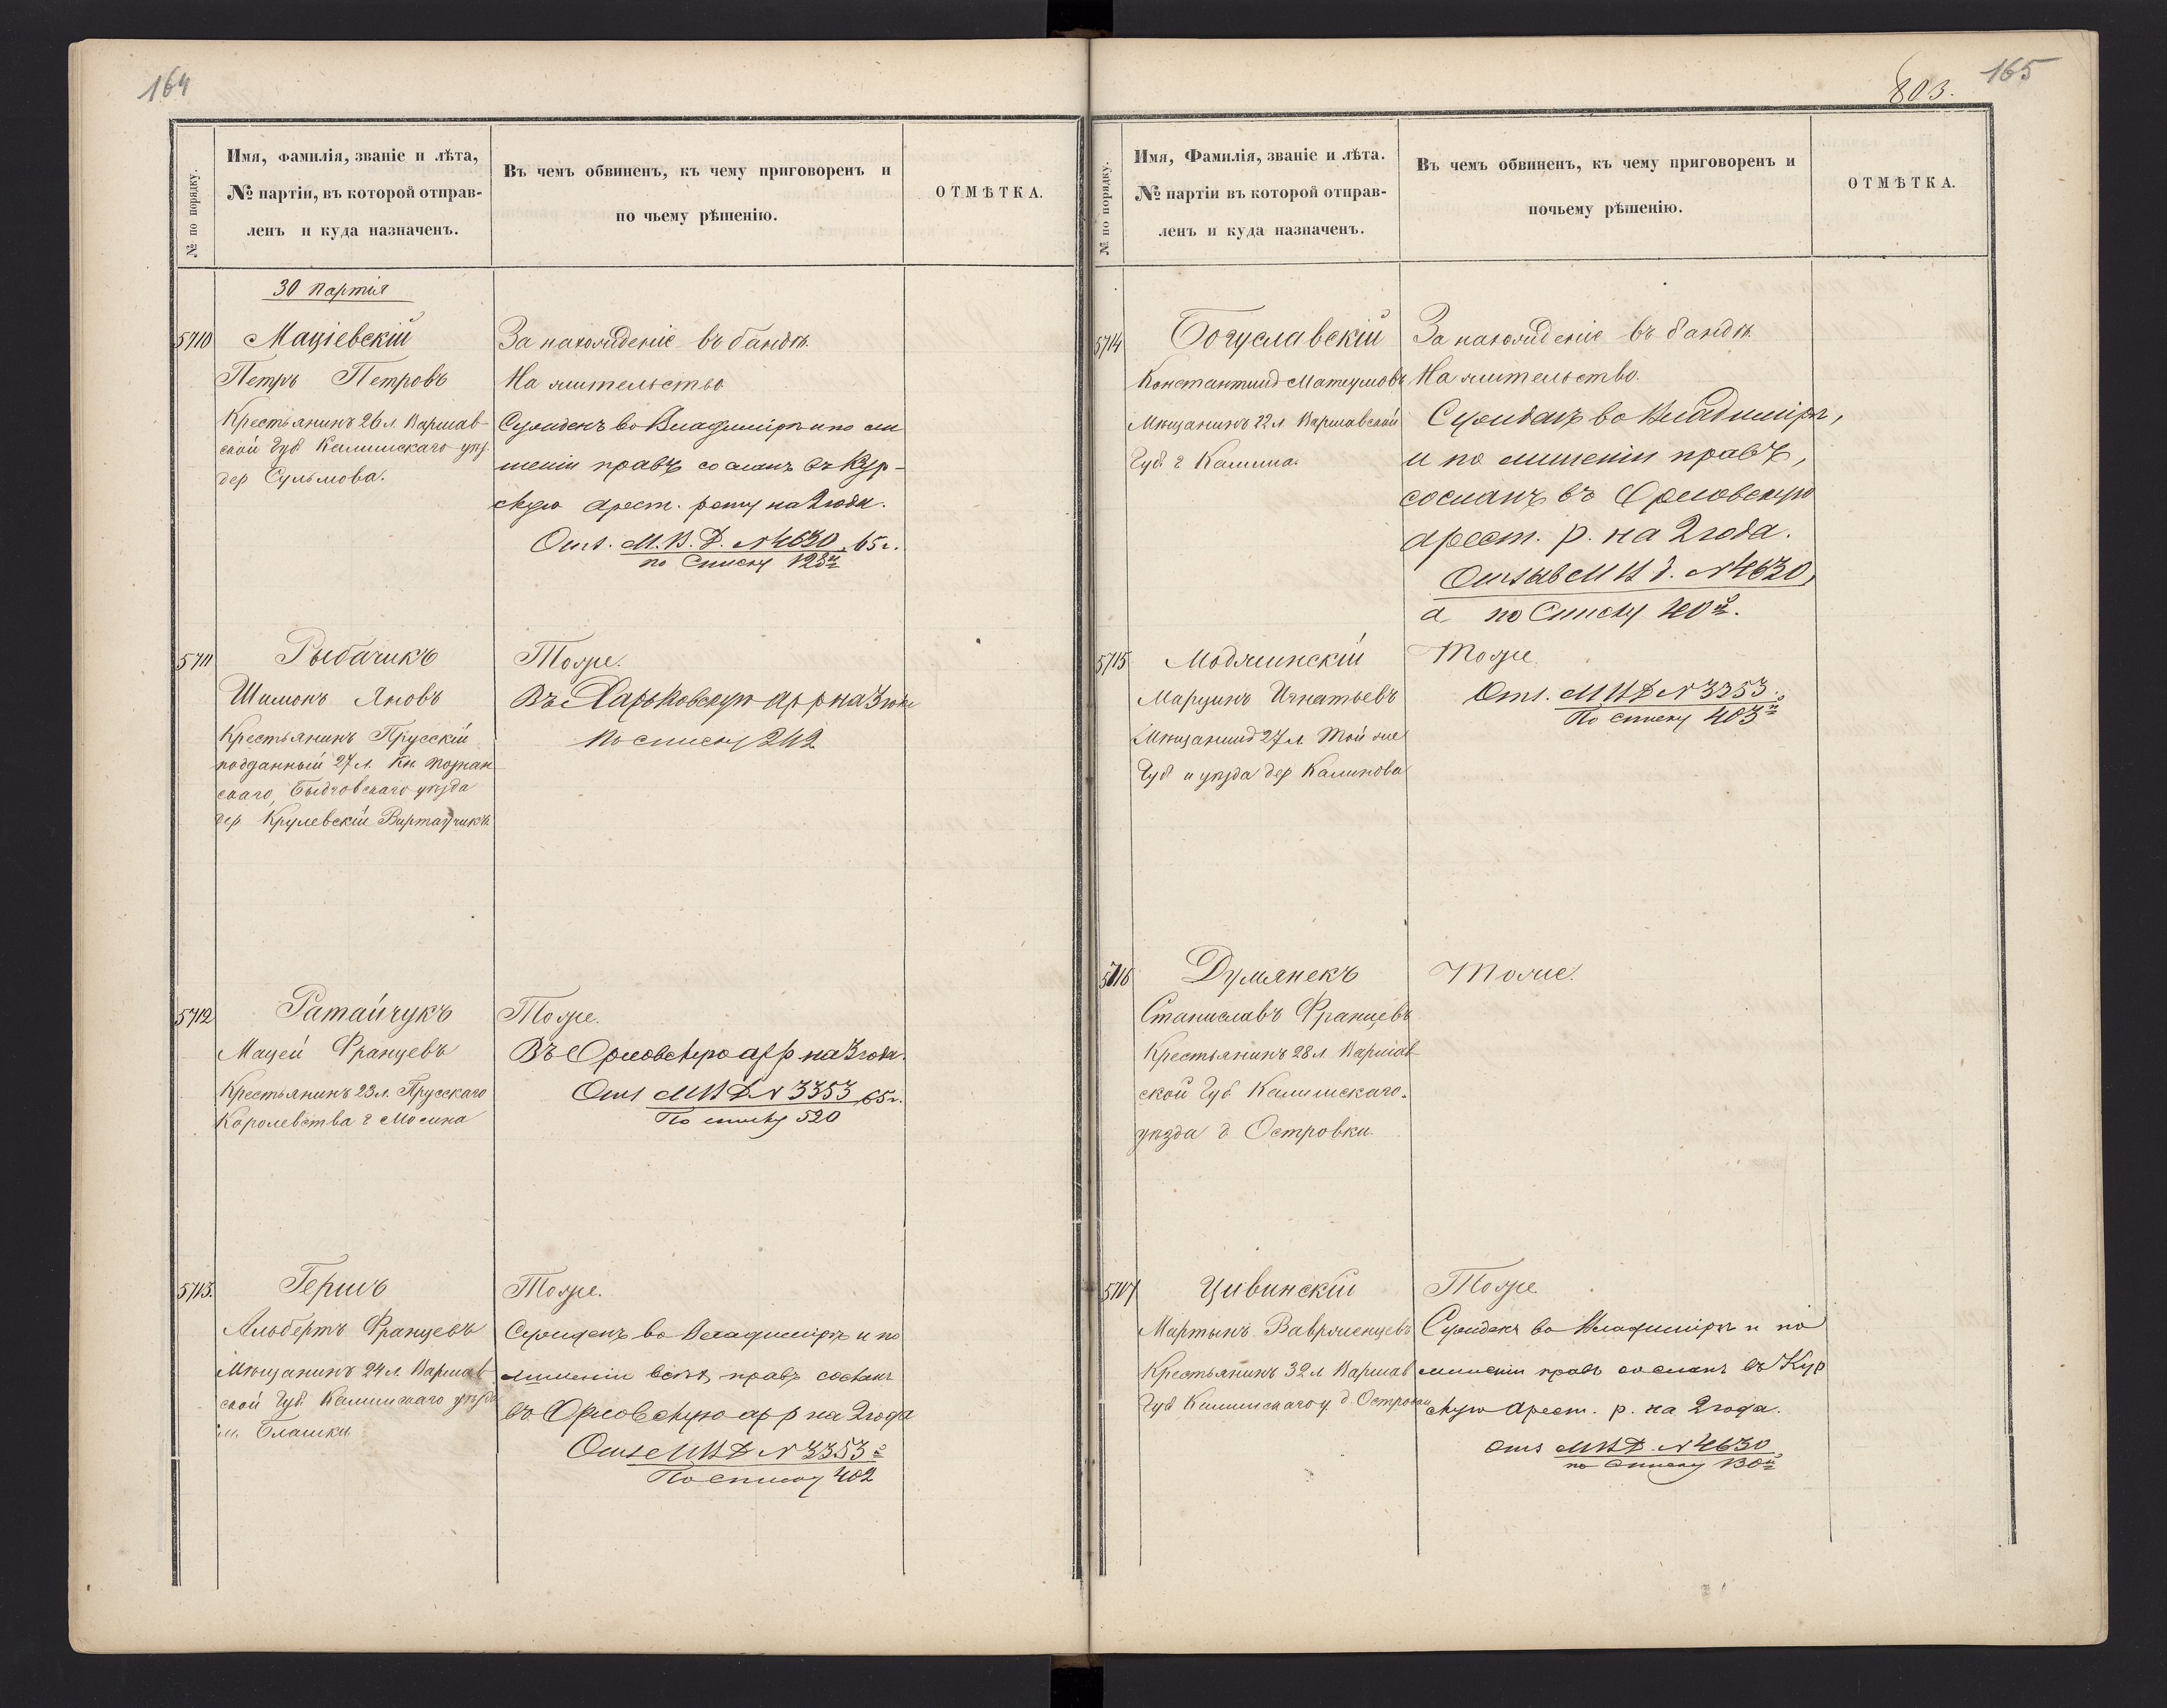 164
№ по порядку.
Имя, фамилія, званіе и лѣта,
№ партіи, въ которой отправ-
ленъ и куда назначенъ.
Въ чемъ обвиненъ, къ чему приговоренъ и
по чьему рѣшенію.
ОТМѢТКА.
30 партія
5710
Маціевскій
Петръ Петровъ
Крестьянинъ 26 л. Варшав-
ской губ Калишскаго уѣз.
дер Сульмова.
За нахожденіе въ бандѣ.
На жительство
Сужденъ во Владимірѣ и по ли
шеніи правъ сосланъ въ Кур-
скую арест. роту на 2 года.
Отз. М.В.Д. № 4630 65 г.
по списку 128й
5711
Рыбачикъ
Шимонъ Яновъ
Крестьянинъ Прусскій
подданный 27 л. Кн. Познан
скаго, Быдговскаго уѣзда
дер Крулевскій
Тоже.
Въ Харьковскую ар р на 3 года
По списку 242
5712
Ратайчукъ
Мацей Францевъ
Крестьянинъ 23 л. Прусскаго
Королевства г Мосина
Тоже.
Въ Орловскую ар р на 3 года.
Отз МВД № 3353 65 г.
По списку 520
5713.
Гершъ
Альбертъ Францевъ
Мѣщанинъ 24 л. Варшав
ской губ. Калишскаго уѣзда
м. Блашки
Тоже.
Сужденъ во Владимірѣ и по
лишеніи всѣхъ правъ сосланъ
въ Орловскую ар р на 2 года
Отз МВД № 3353
По списку 402
165
803.
№ по порядку.
Имя, Фамилія, званіе и лѣта.
№ партіи въ которой отправ-
ленъ и куда назначенъ.
Въ чемъ обвиненъ, къ чему приговоренъ и
почьему рѣшенію.
ОТМѢТКА.
5714
Богуславскій
Константинъ Матеушовъ
Мѣщанинъ 22 л. Варшавской
Губ. г Калиша.
За нахожденіе въ бандѣ.
На жительство.
Сужденъ во Владимірѣ,
и по лишеніи правъ,
сосланъ въ Орловскую
арест. р. на 2 года.
Отзывъ М В Д. № 4630,
а по списку 40й.
5715
Модлинскій
Марцинъ Игнатьевъ
Мѣщанинъ 27 л. той же
Губ и уѣзда дер Калинова
Тоже.
Отз. МВД № 3353.
По списку 403й
5716
Думянекъ
Станиславъ Францевъ
Крестьянинъ 28 л. Варшав
ской Губ Калишскаго
уѣзда д Островки.
Тоже.
5717
Цивинскій
Мартынъ Ваврженцевъ
Крестьянинъ 32 л Варшав
Губ Калишскаго у д Островки
Тоже
Сужденъ во Владимірѣ и по
лишеніи правъ сосланъ въ Кур
скую арест. р. на 2 года.
Отз МВД № 4630
по списку 130й